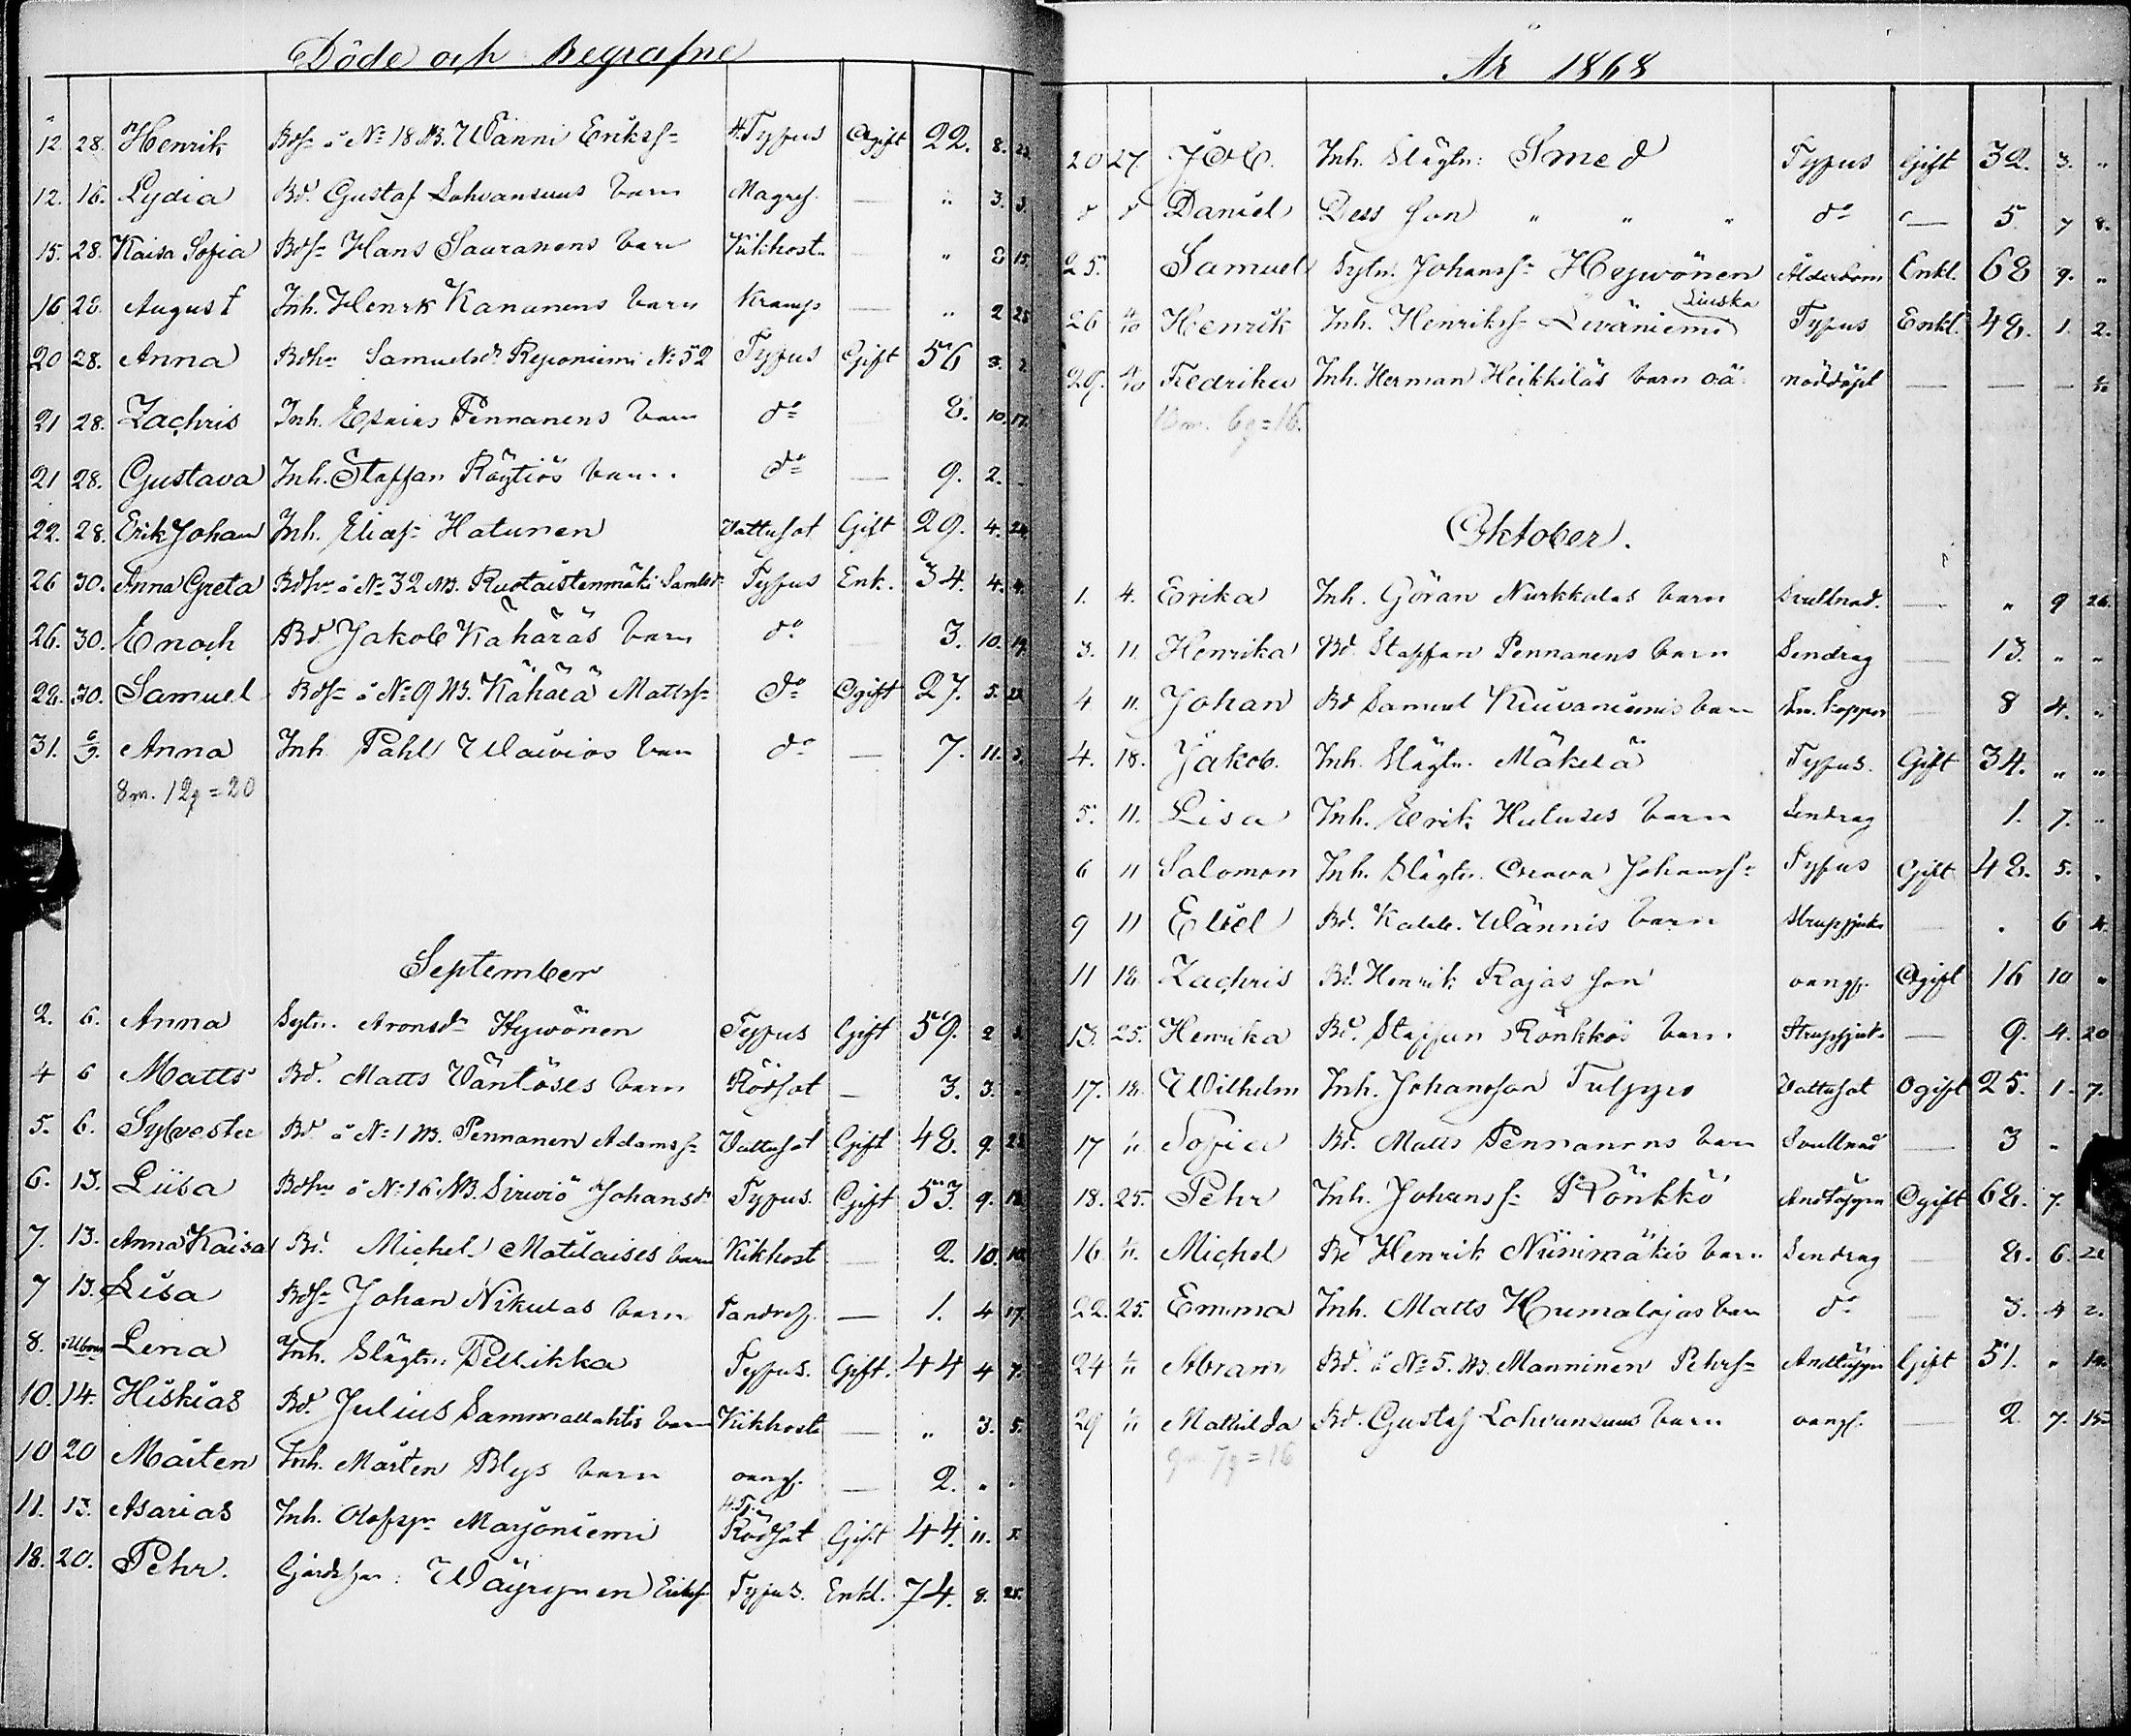 Döde och Begrafne
12. 28. Henrik Bds. å No 18 NB. Wänni Erikss. Typus Ogift 22. 8. 22.
12. 16. Lydia Bd. Gustaf Lohvansuus barn Magref. — " 3. 3.
15. 28. Kaisa Sofia Bds. Hans Sauranens barn Kikhost. — " 8 15.
16 28. August Inh. Henrk Kananens barn Kramp — " 2 25
20 28. Anna Bdhu Samuelsdr Reponiemi No 52 Typus Gift 56 3. 2.
21 28. Zachris Inh. Esaias Pennanens barn do 8. 10. 17.
21 28. Gustava Inh. Staffan Räytiös barn. do — 9. 2.
22. 28. Erik Johan Inh. Elias Hatunen Vattusot Gift 29. 4. 24.
26 30. Anna Greta Bdhu å No 32 NB. Ruotaistenmäki Samlsdr Typus Enk. 34. 4. 4.
26. 30. Enoch Bd Jakob Kähäräs barn do 3. 10. 19.
28. 30. Samuel Bds. å No 9 NB. Kähärä Mattss. do Ogift 27. 5. 22
31. 6/9. Anna Inh Påhl Waivios barn do — 7. 11. 3.
8 m. 12 q = 20
September
2. 6. Anna Sytn. Aronsdr Hyvönen Typus Gift 59. 2 3.
4 6 Matts Bd. Matts Väntöses barn Rödsot — 3. 3.
5. 6. Sylvester Bd å No 1 NB. Pennanen Adamss. Vattusot Gift 48. 9. 25
6. 13. Liisa Bdhu å No 16 NB. Sirviö Johansdr Typus. Gift 53. 9. 18.
7. 13. Anna Kaisa Bd. Michel Matilaises barn Kikhost — 2. 10. 10.
7 13. Lisa Bds. Johan Nikulas barn Tandref. — 1. 4 17.
8. Lena Inh. Slägtn. Pellikka Typus. Gift. 44 4 7.
10. 14. Hiskias Bd. Julius Sammallahtis barn Kikhost — " 3. 5.
10 20 Mårten Inh. Mårten Blys barn oangf. — 2. " "
11. 13. Asarias Inh. Olofss. Marjoniemi Rödsot Gift 44. 11. 5.
18. 20. Pehr. Wäyrynen Erikss. Typus. Enkl. 74. 8. 25.
År 1868
20 27. Job. Inh. Slägtn: Smed Typus Gift 32. 3. "
d d Daniel Dess son " " " do — 5. 7 8.
25. Samuel Sytn. Johanss. Hyvönen Ålderdom Enkl. 68 9. "
26 4/10 Henrik Inh. Henrikss. Leväniemi Liuska Typus Enkl. 48. 1. 2.
29. 4/10 Fredrika Inh. Herman Heikkiläs barn oä. nöddöpt — — — 1/2
10 m. 6 q = 16.
Oktober.
1. 4. Erika Inh. Göran Nurkkalas barn Svullnad. — " 9 26.
3. 11. Henrika Bd. Staffan Pennanens barn Sendrag — 13. " "
4 11. Johan Bd Samuel Kiuvaniemis barn Sm. koppor — 8 4. "
4. 18. Jakob. Inh. Slägtn. Mäkelä Typus. Gift 34. " "
5. 11. Lisa Inh. Erik Hulures barn Sendrag 1. 7. "
6 11 Salomon Inh. Slägtn. Johanss. Typus Gift 48. 5. "
9 11 Eliel Bd. Kaleb. Wännis barn Strupsjuk. — . 6 4.
11 18. Zachris Bd. Henrik Rajas son oangf. Ogift 16 10 "
13. 25. Henrika Bd. Staffan Rönkkös barn Strupsjuk. — 9. 4. 20
17. 18. Wilhelm Inh. Johansson Tulppo Vattusot Ogift 25. 1. 7.
17 1/11 Sofia Bd. Matts Pennanens barn Svullnad — 3 "
18. 25. Pehr Inh. Johanss. Rönkkö Andtäppa Ogift 68. 7.
16. 1/11. Michel Bd Henrik Niinimäkis barn Sendrag — 8. 6. 21
22. 25. Emma Inh. Matts Humalojas barn do — 3. 4 2.
24 1/11 Abram Bd. å No 5. NB. Manninen Pehrs. Andtäppa Gift 51. " 14.
29 1/11 Mathilda Bd. Gustaf Lohvansuus barn oangf. — 2. 7. 15.
9 m. 7 q = 16